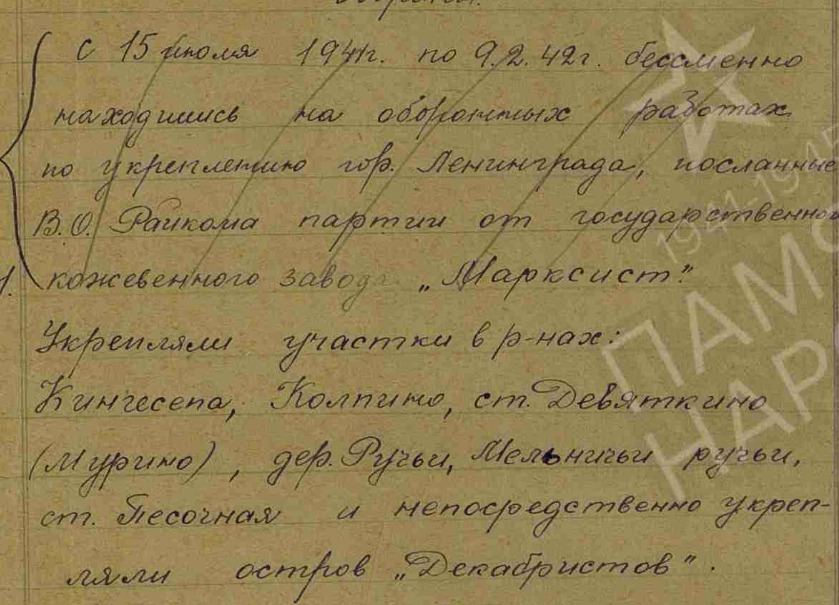 С 15 июля 1941г. по 9.2.42г. бессменно
находились на оборонных работах
по укреплению гор. Ленинграда, посланные
В.О. Райкома партии от государственного
1. кожевенного завода „Марксист."
Укрепляли участки в р-нах:
Кингесепа, Колпино, ст. Девяткино
(Мурино), дер. Ручьи, Мельничьи ручьи,
ст. Песочная и непосредственно укреп-
ляли остров „Декабристов".
1941-1945
ПАМ
НАР